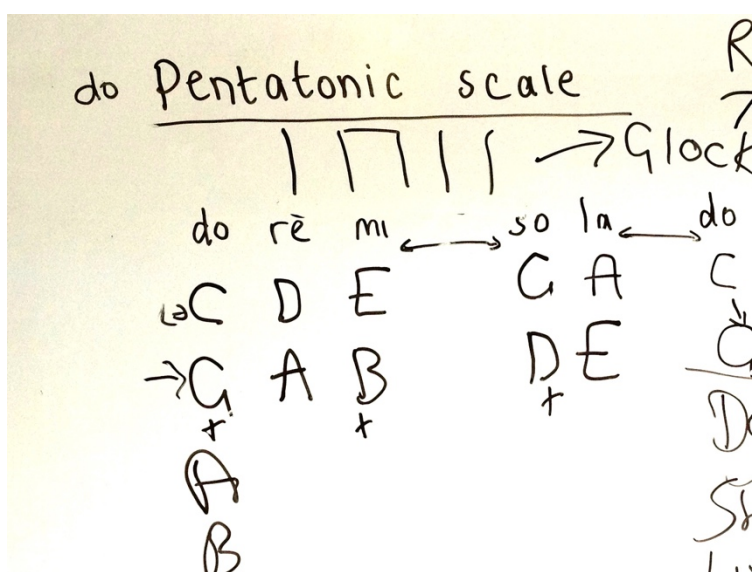 do Pentatonic scale
do rē mi so la do
C D E G A C
G A B D E G
+ + +
A
B